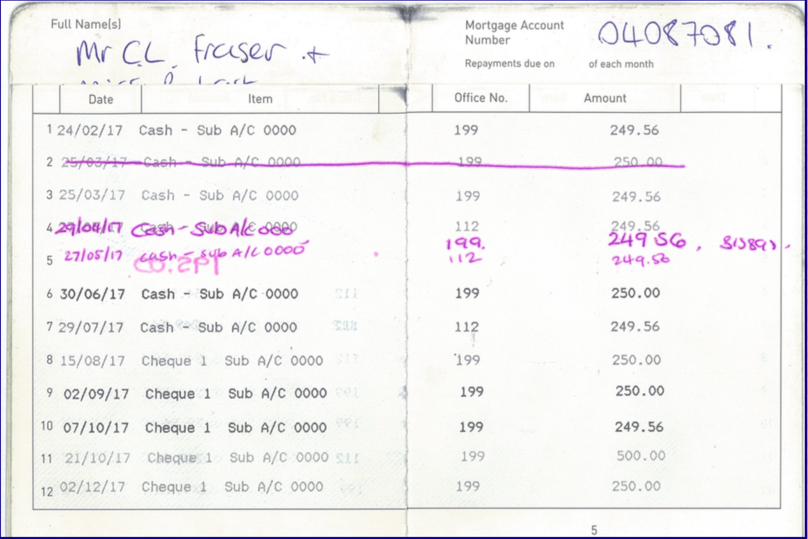 Full Name(s)
Mr C.L. Fraser +
Mortgage Account
Number
04087081.
Repayments due on of each month
Date Item Office No. Amount
1 24/02/17 Cash - Sub A/C 0000 199 249.56
2 25/03/17 Cash - Sub A/C 0000 199 250.00
3 25/03/17 Cash - Sub A/C 0000 199 249.56
4 29/04/17 Cash - Sub A/C 0000 112 249.56
29/04/17 Cash - Sub A/C 000 199. 249 56,
5 27/05/17 cash - sub A/C 0000 112 249.56
6 30/06/17 Cash - Sub A/C 0000 199 250.00
7 29/07/17 Cash - Sub A/C 0000 112 249.56
8 15/08/17 Cheque 1 Sub A/C 0000 199 250.00
9 02/09/17 Cheque 1 Sub A/C 0000 199 250.00
10 07/10/17 Cheque 1 Sub A/C 0000 199 249.56
11 21/10/17 Cheque 1 Sub A/C 0000 199 500.00
12 02/12/17 Cheque 1 Sub A/C 0000 199 250.00
5